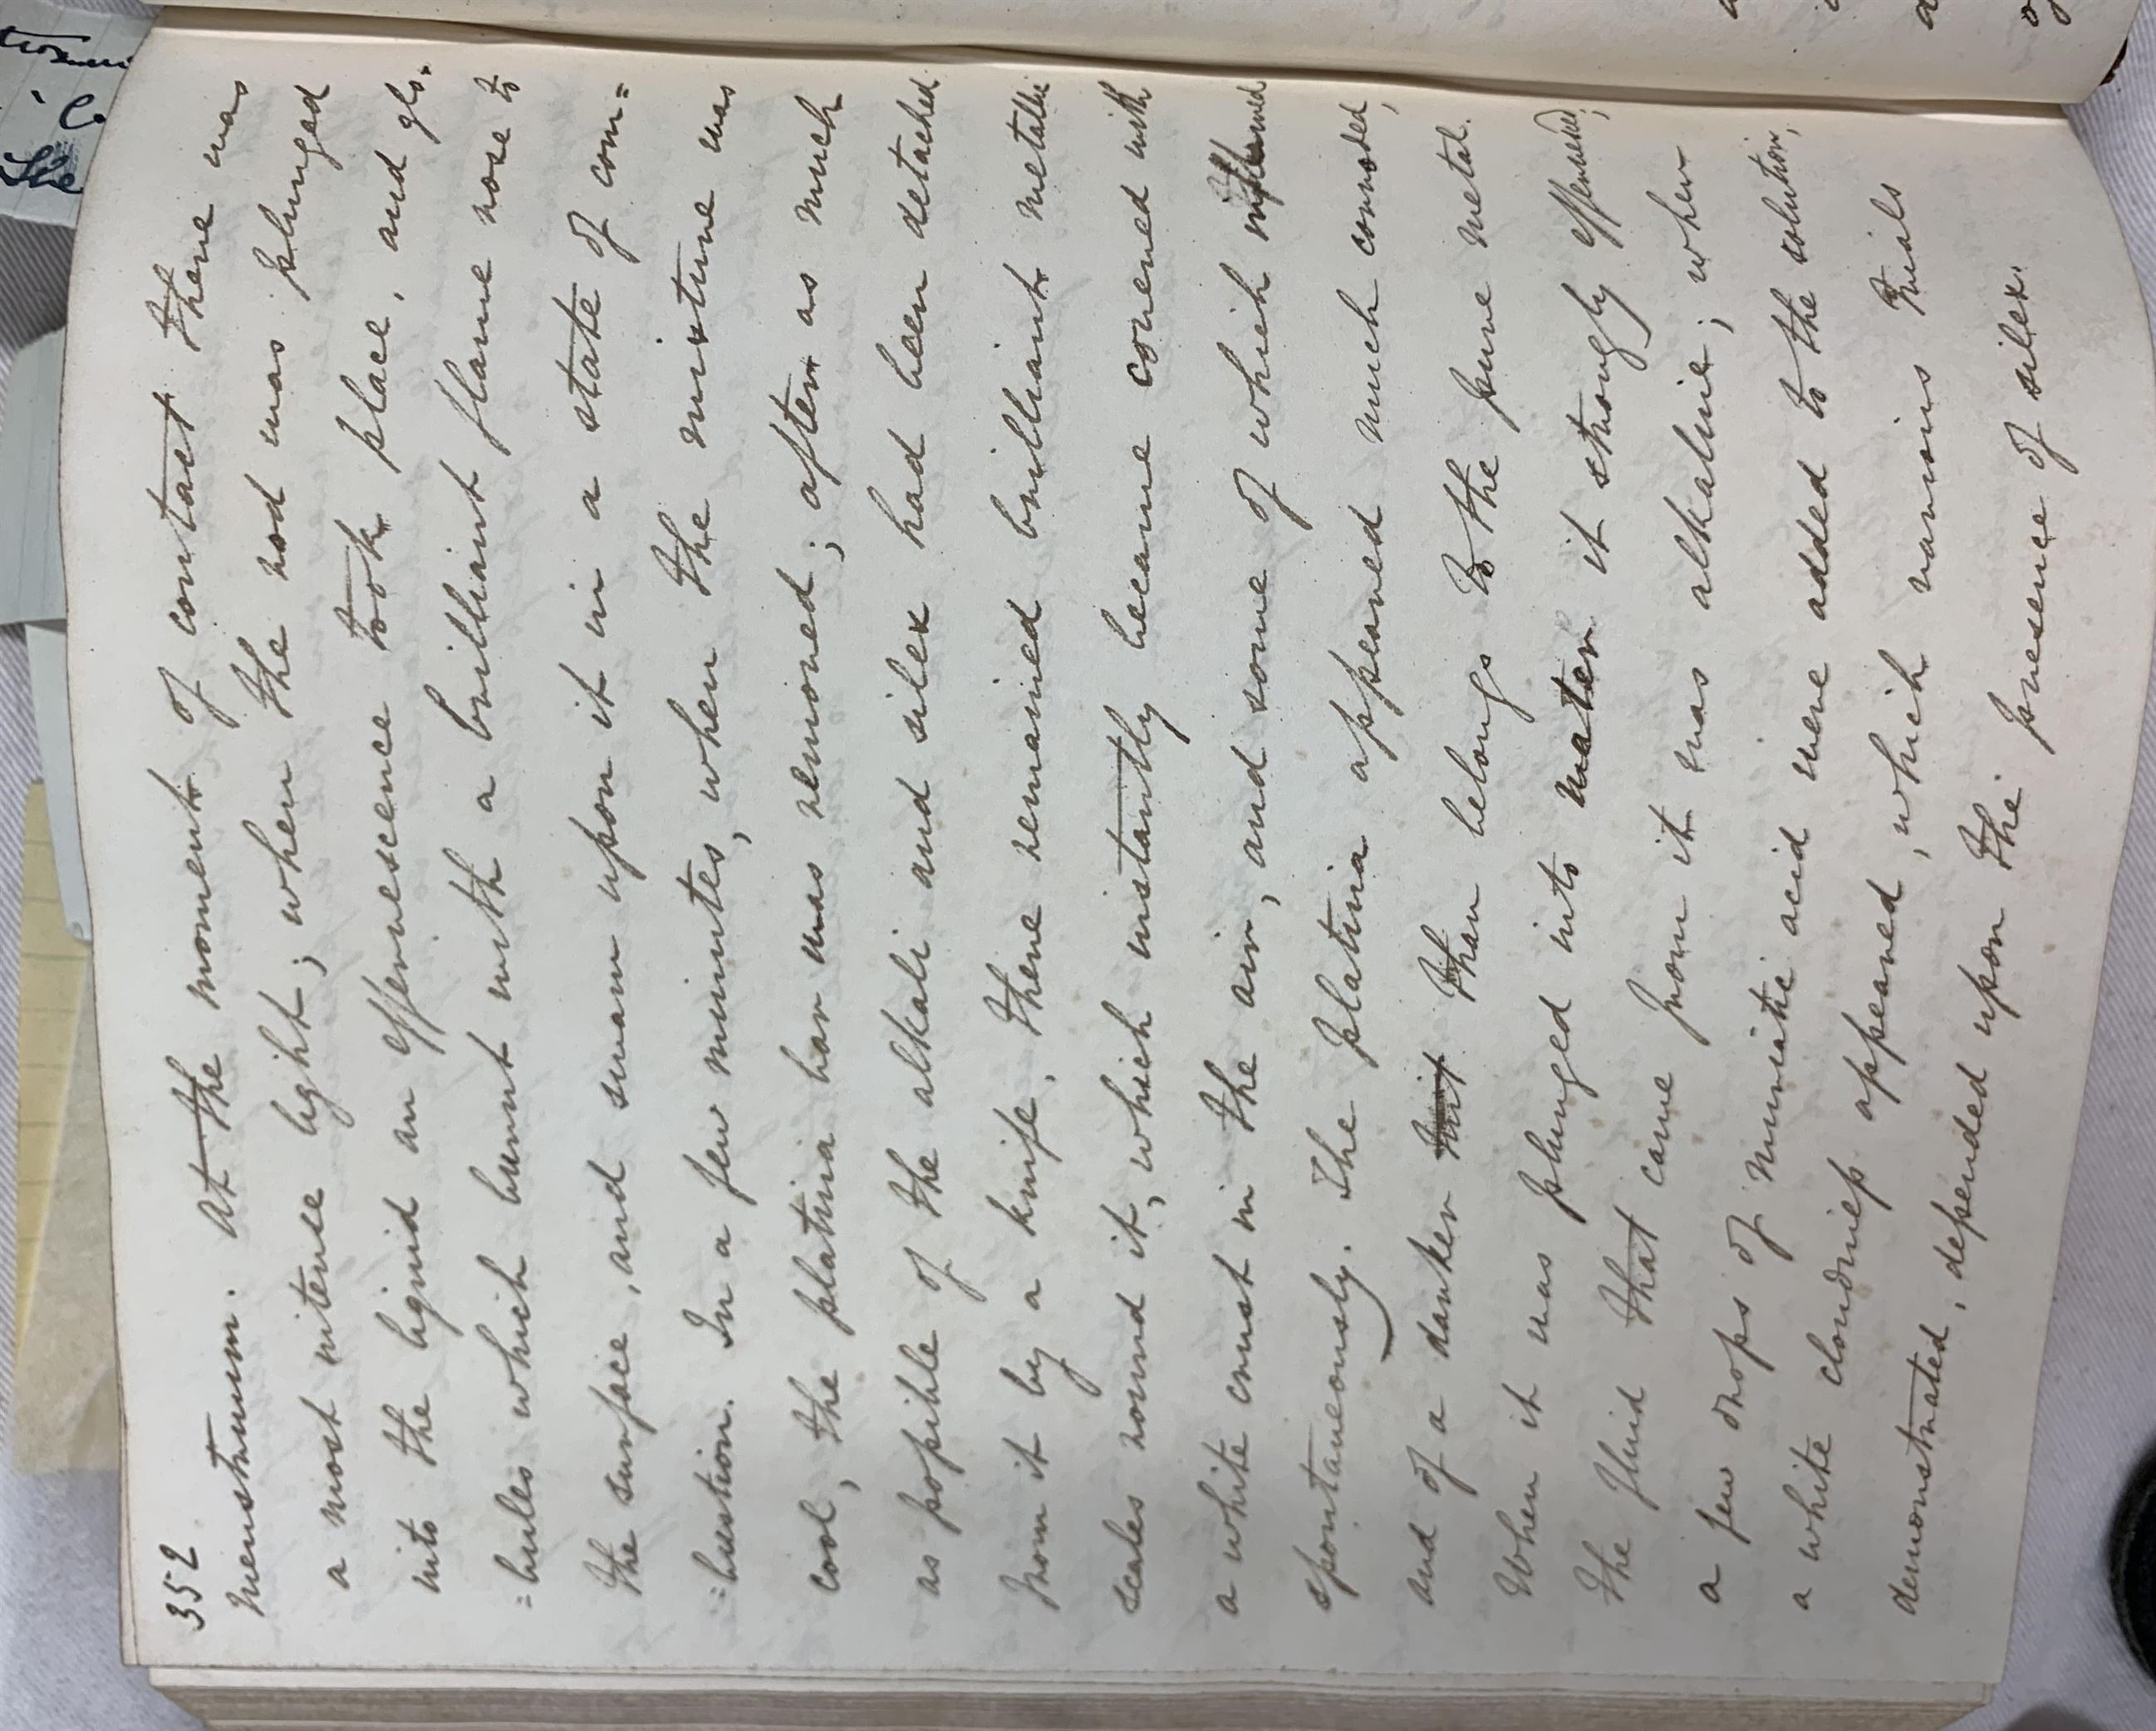 352
menstrum. At the moment of contact there was
a most intense light; when the rod was plunged
into the liquid an effervescence took place, and glo-
=bules which burnt with a brilliant flame rose to
the surface, and swam upon it in a state of com=
=bustion. In a few minutes, when the mixture was
cool, the platina bar was removed; after as much
as possible of the alkali and silex had been detached
from it by a knife, there remained brilliant metallic
scales round it, which instantly became covered with
a white crust in the air, and some of which inflamed
spontaneously. The platina appeared much corroded,
and of a darker tint than belongs to the pure metal.
When it was plunged into water it strongly effervesced;
the fluid that came from it was alkaline; when
a few drops of muriatic acid were added to the solution,
a white cloudiness appeared, which various trials
demonstrated, depended upon the presence of silex.
the